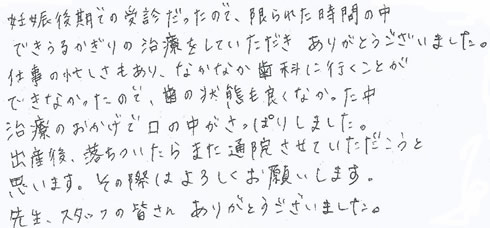 妊娠後期での受診だったので、限られた時間の中
できうるかぎりの治療をしていただき ありがとうございました。
仕事の忙しさもあり、なかなか歯科に行くことが
できなかったので、歯の状態も良くなかった中
治療のおかげで口の中がさっぱりしました。
出産後、落ちついたらまた通院させていただこうと
思います。その際はよろしくお願いします。
先生、スタッフの皆さん ありがとうございました。